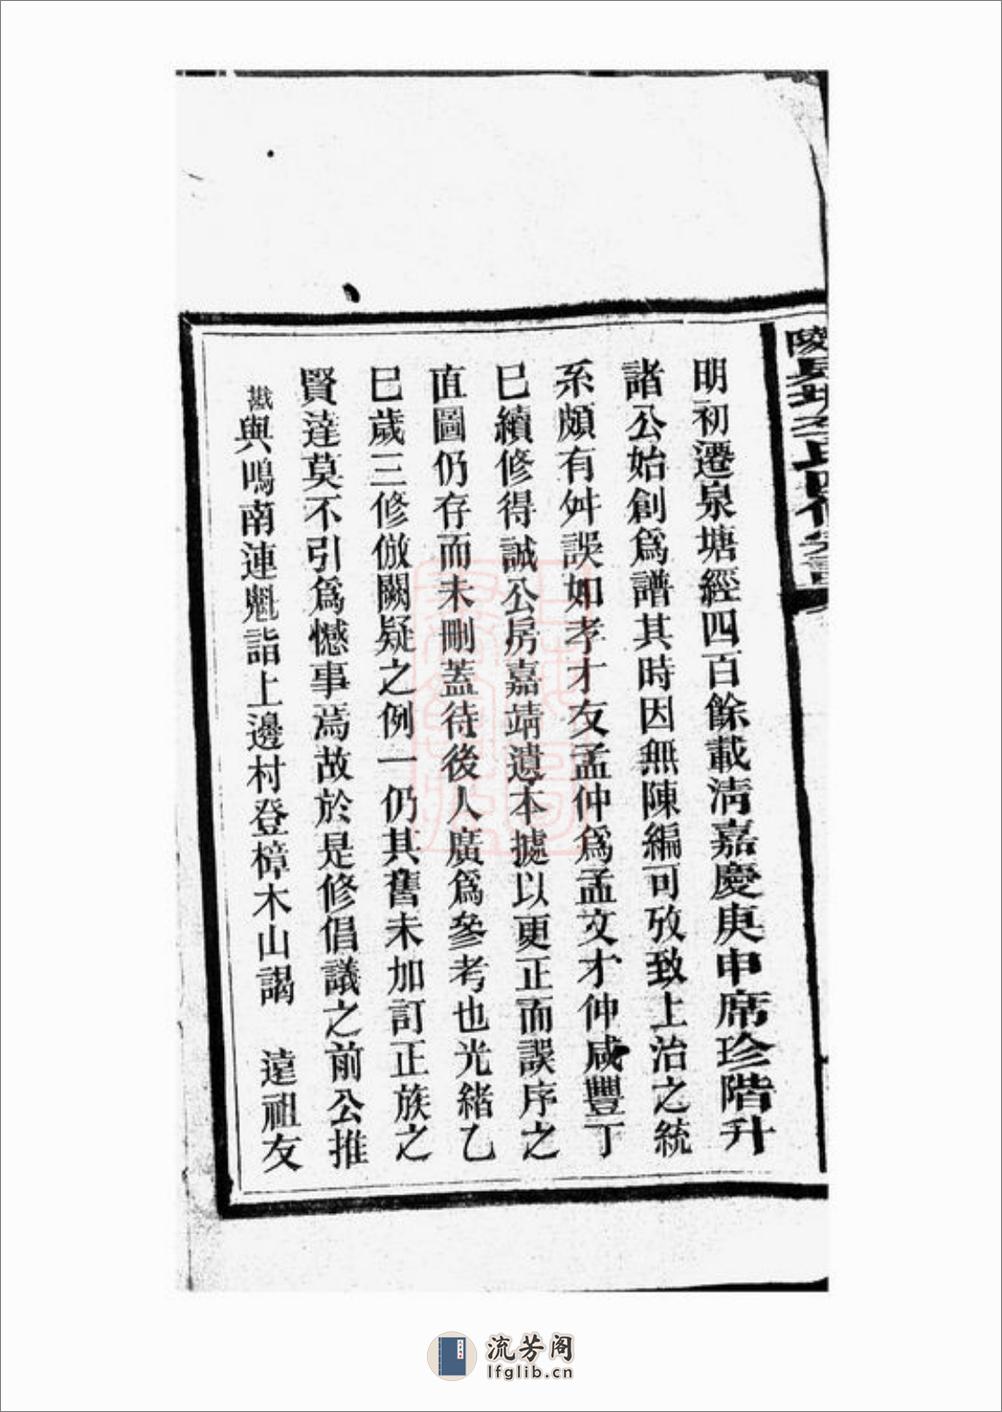 明初遷泉塘經四百餘載淸嘉慶庚申席珍階升
諸公始創爲譜其時因無陳編可攷致上治之統
系頗有舛誤如孝才友孟仲爲孟文才仲咸豐丁
巳續修得誠公房嘉靖遺本據以更正而誤序之
直圖仍存而未刪蓋待後人廣爲參考也光緒乙
巳歲三修倣闕疑之例一仍其舊未加訂正族之
賢達莫不引爲憾事焉故於是修倡議之前公推
與鳴南連魁詣上邊村登樟木山謁　遠祖友
流芳阁
lfglib.cn